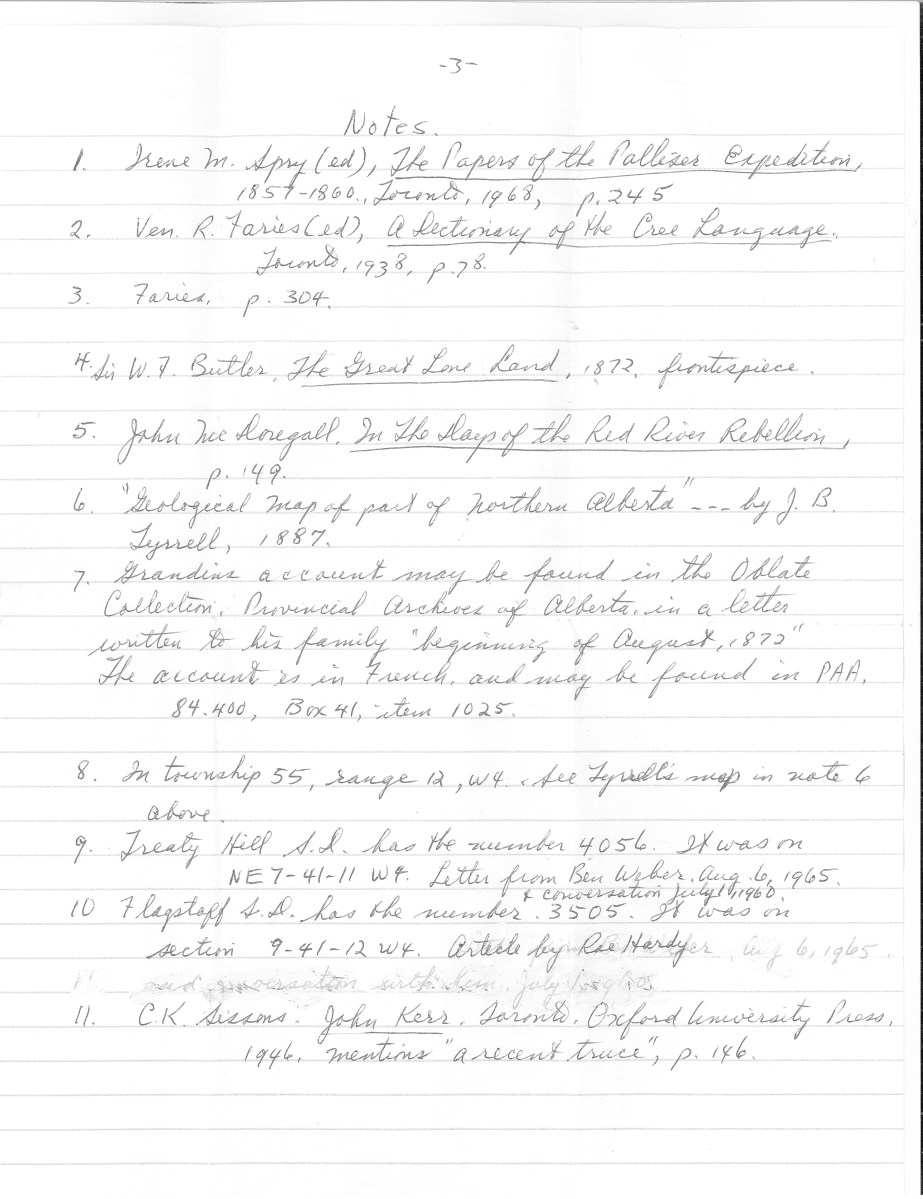 -3-
Notes.
1. Irene M. Spry (ed), The Papers of the Palliser Expedition,
1857-1860., Toronto, 1968, p.245
2. Ven. R. Faries (ed), A Dectionary of the Cree Language.
Toronto, 1938, p.78.
3. Faries, p. 304.
4. Sir W.F. Butler, The Great Lone Land, 1872, frontispiece.
5. John Mc Doregall. In The Days of the Red River Rebellion,
p. 149.
6. "Geological Map of part of Northern Alberta" --- by J. B.
Tyrrell, 1887.
7. Grandins account may be found in the Oblate
Collection, Provincial Archives of Alberta, in a letter
written to his family "beginning of August, 1872"
The account is in French, and may be found in PAA,
84.400, Box 41, item 1025.
8. In township 55, range 12, W4. See Tyrrell's map in note 6
above.
9. Treaty Hill S.D. has the number 4056. It was on
NE 7-41-11 W4. Letter from Ben Weber, Aug. 6, 1965.
& conversation July 11, 1960.
10 Flagstaff S.D. has the number 3505. It was on
section 9-41-12 W4. Article by Roe Hardy Aug 6, 1965.
and conversation with him, July
11. C.K. Sissons. John Kerr. Toronto. Oxford University Press,
1946, mentions "a recent truce", p. 146.